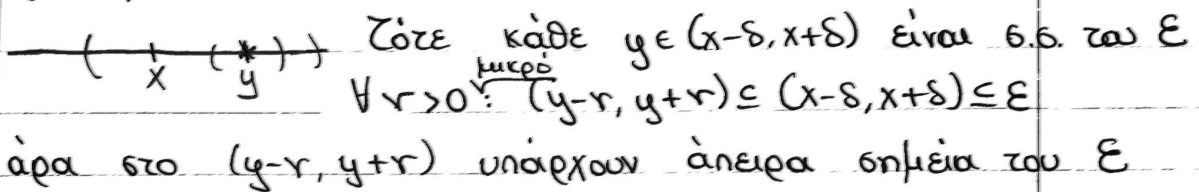 Τότε κάθε y ∈ (x-δ, x+δ) είναι σ.σ. του ε
x y
μικρό
∀ r>0 : (y-r, y+r) ⊆ (x-δ, x+δ) ⊆ ε
άρα στο (y-r, y+r) υπάρχουν άπειρα σημεία του ε